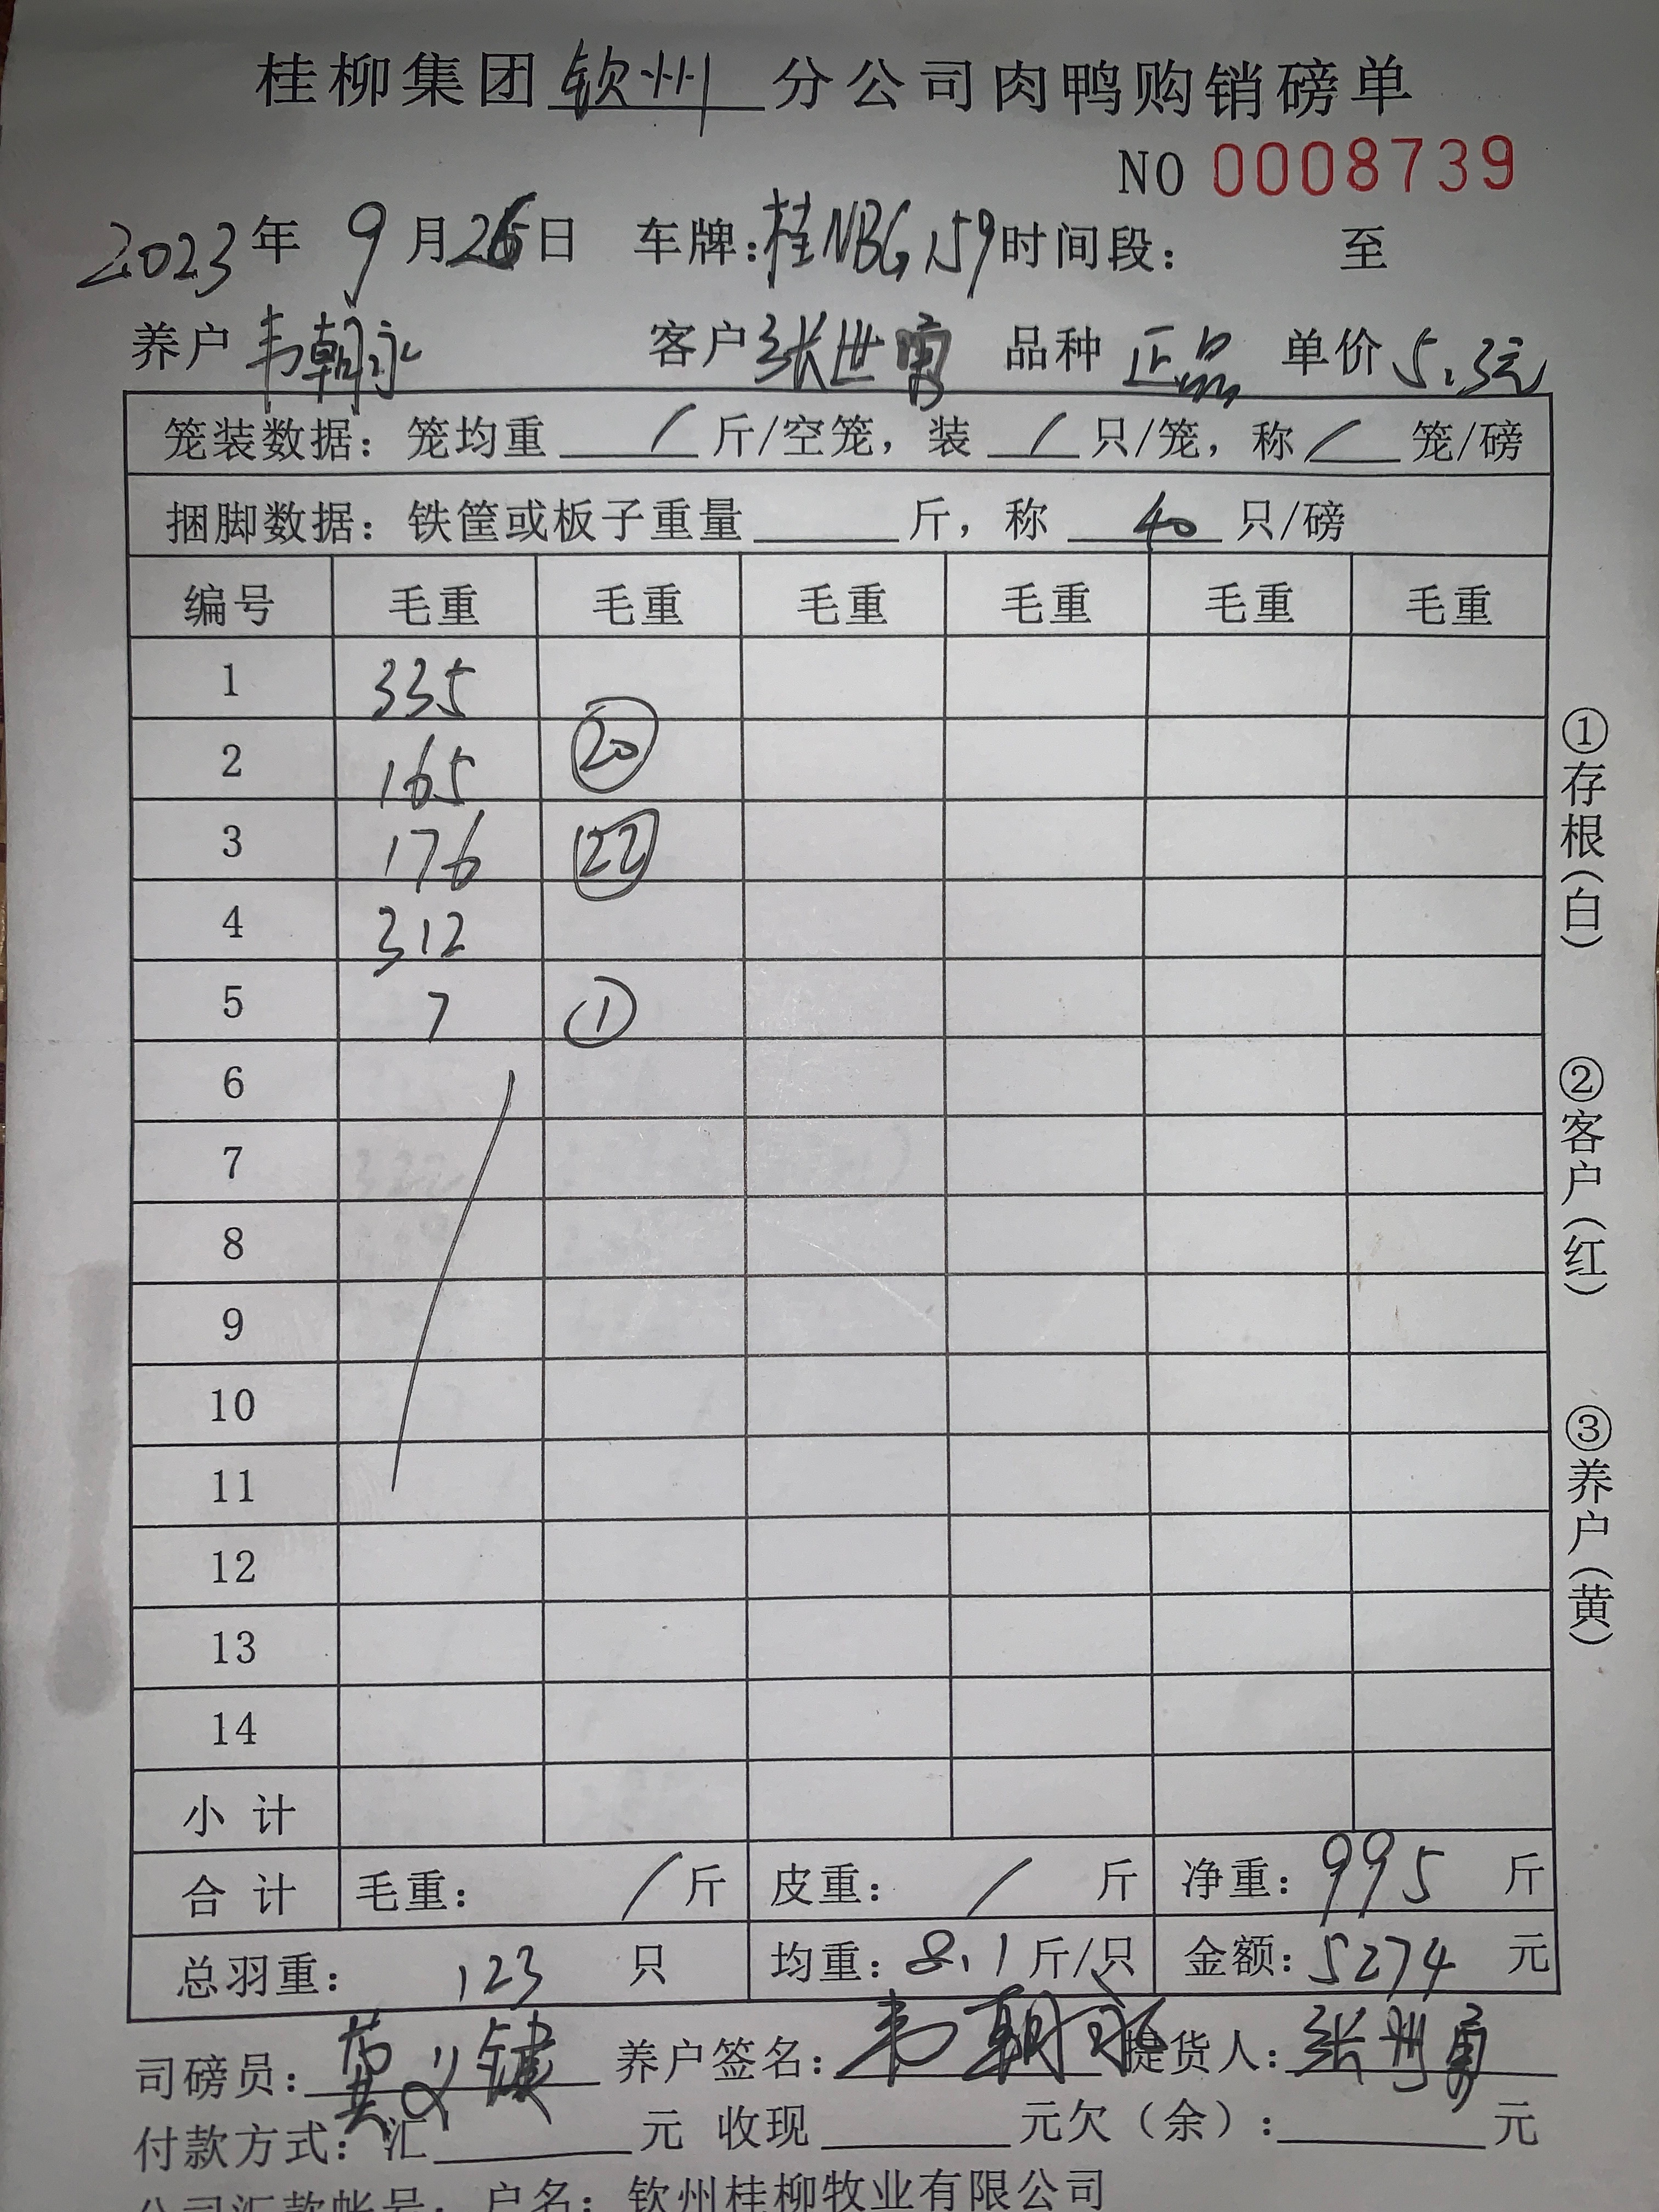 桂柳集团钦州分公司肉鸭购销磅单
NO 0008739
2023年 9月26日 车牌:桂NBG159时间段: 至
养户 韦朝永 客户 张世勇 品种 正品 单价 5.3元
笼装数据: 笼均重 / 斤/空笼, 装 / 只/笼, 称 / 笼/磅
捆脚数据: 铁筐或板子重量 斤, 称 40 只/磅
编号 毛重 毛重 毛重 毛重 毛重 毛重
1 335
2 165 ⑳
3 176 ㉒
4 312
5 7 ①
6
7
8
9
10
11
12
13
14
小计
合计 毛重: / 斤 皮重: / 斤 净重: 995 斤
总羽重: 123 只 均重: 8.1 斤/只 金额: 5274 元
司磅员: 莫义键 养户签名: 韦朝永 提货人: 张世勇
付款方式: 汇 元 收现 元欠(余): 元
公司汇款帐号: 户名: 钦州桂柳牧业有限公司
①存根(白)
②客户(红)
③养户(黄)